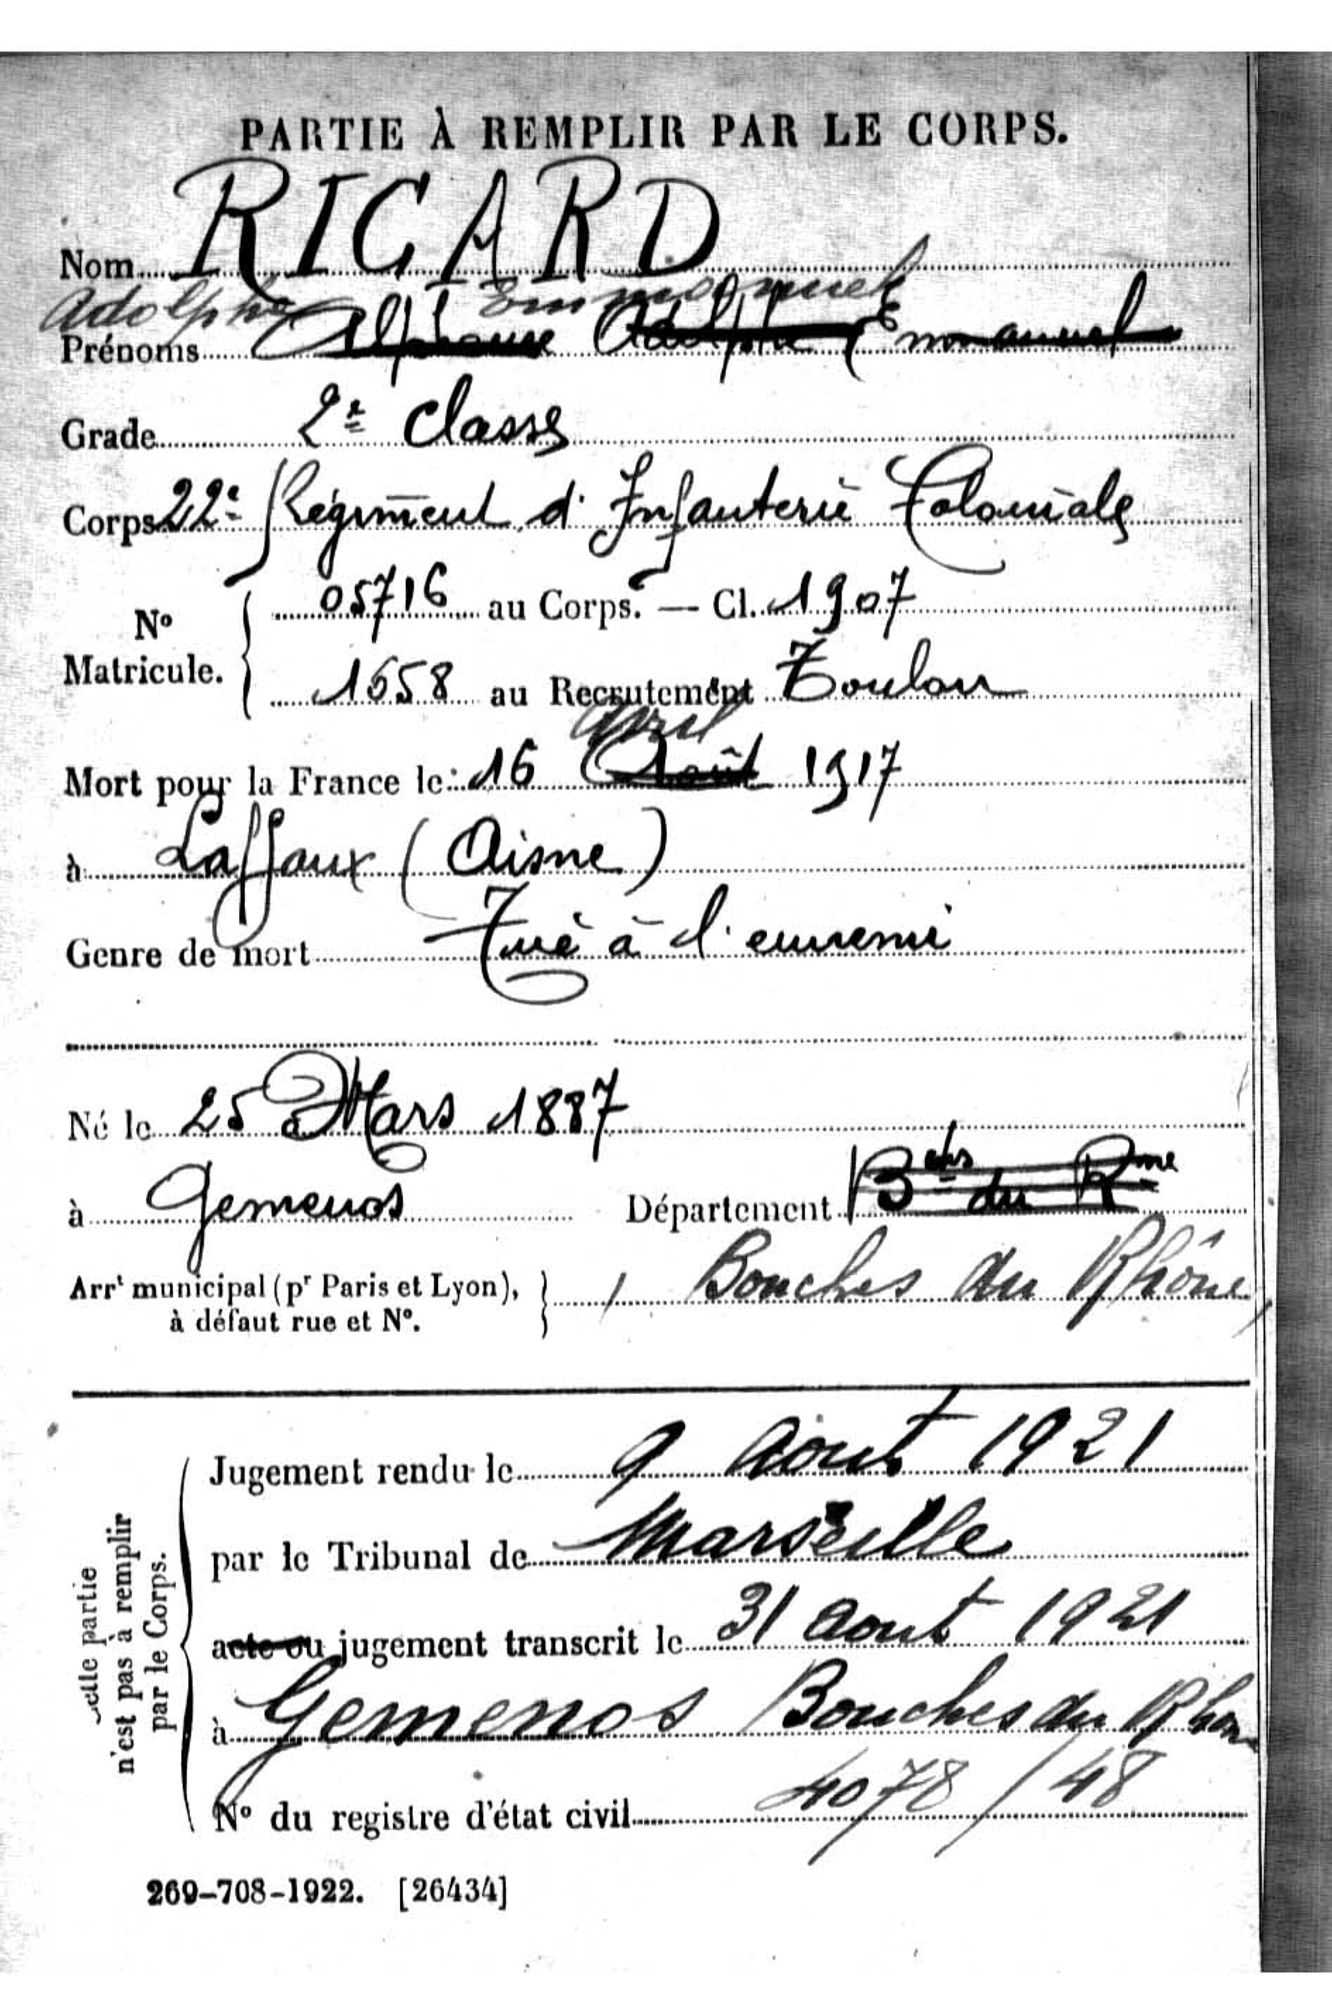 PARTIE À REMPLIR PAR LE CORPS.
Nom RICARD
Adolphe Emmanuel
Prénoms Alphonse Adolphe Emmanuel
Grade 2e classe
Corps 22e Régiment d'Infanterie Coloniale
05716 au Corps. — Cl. 1907
No Matricule.
1658 au Recrutement Toulon
avril
Mort pour la France le 16 Août 1917
à Laffaux (Aisne)
Genre de mort Tué à l'ennemi
Né le 25 Mars 1887
à Gemenos Département Bches du Rne
Arrt municipal (pr Paris et Lyon), Bouches du Rhône
à défaut rue et No.
Jugement rendu le 9 aout 1921
par le Tribunal de Marseille
acte ou jugement transcrit le 31 aout 1921
à Gemenos Bouches du Rhone
No du registre d'état civil 4078/48
Cette partie
n'est pas à remplir
par le Corps.
269-708-1922. [26434]